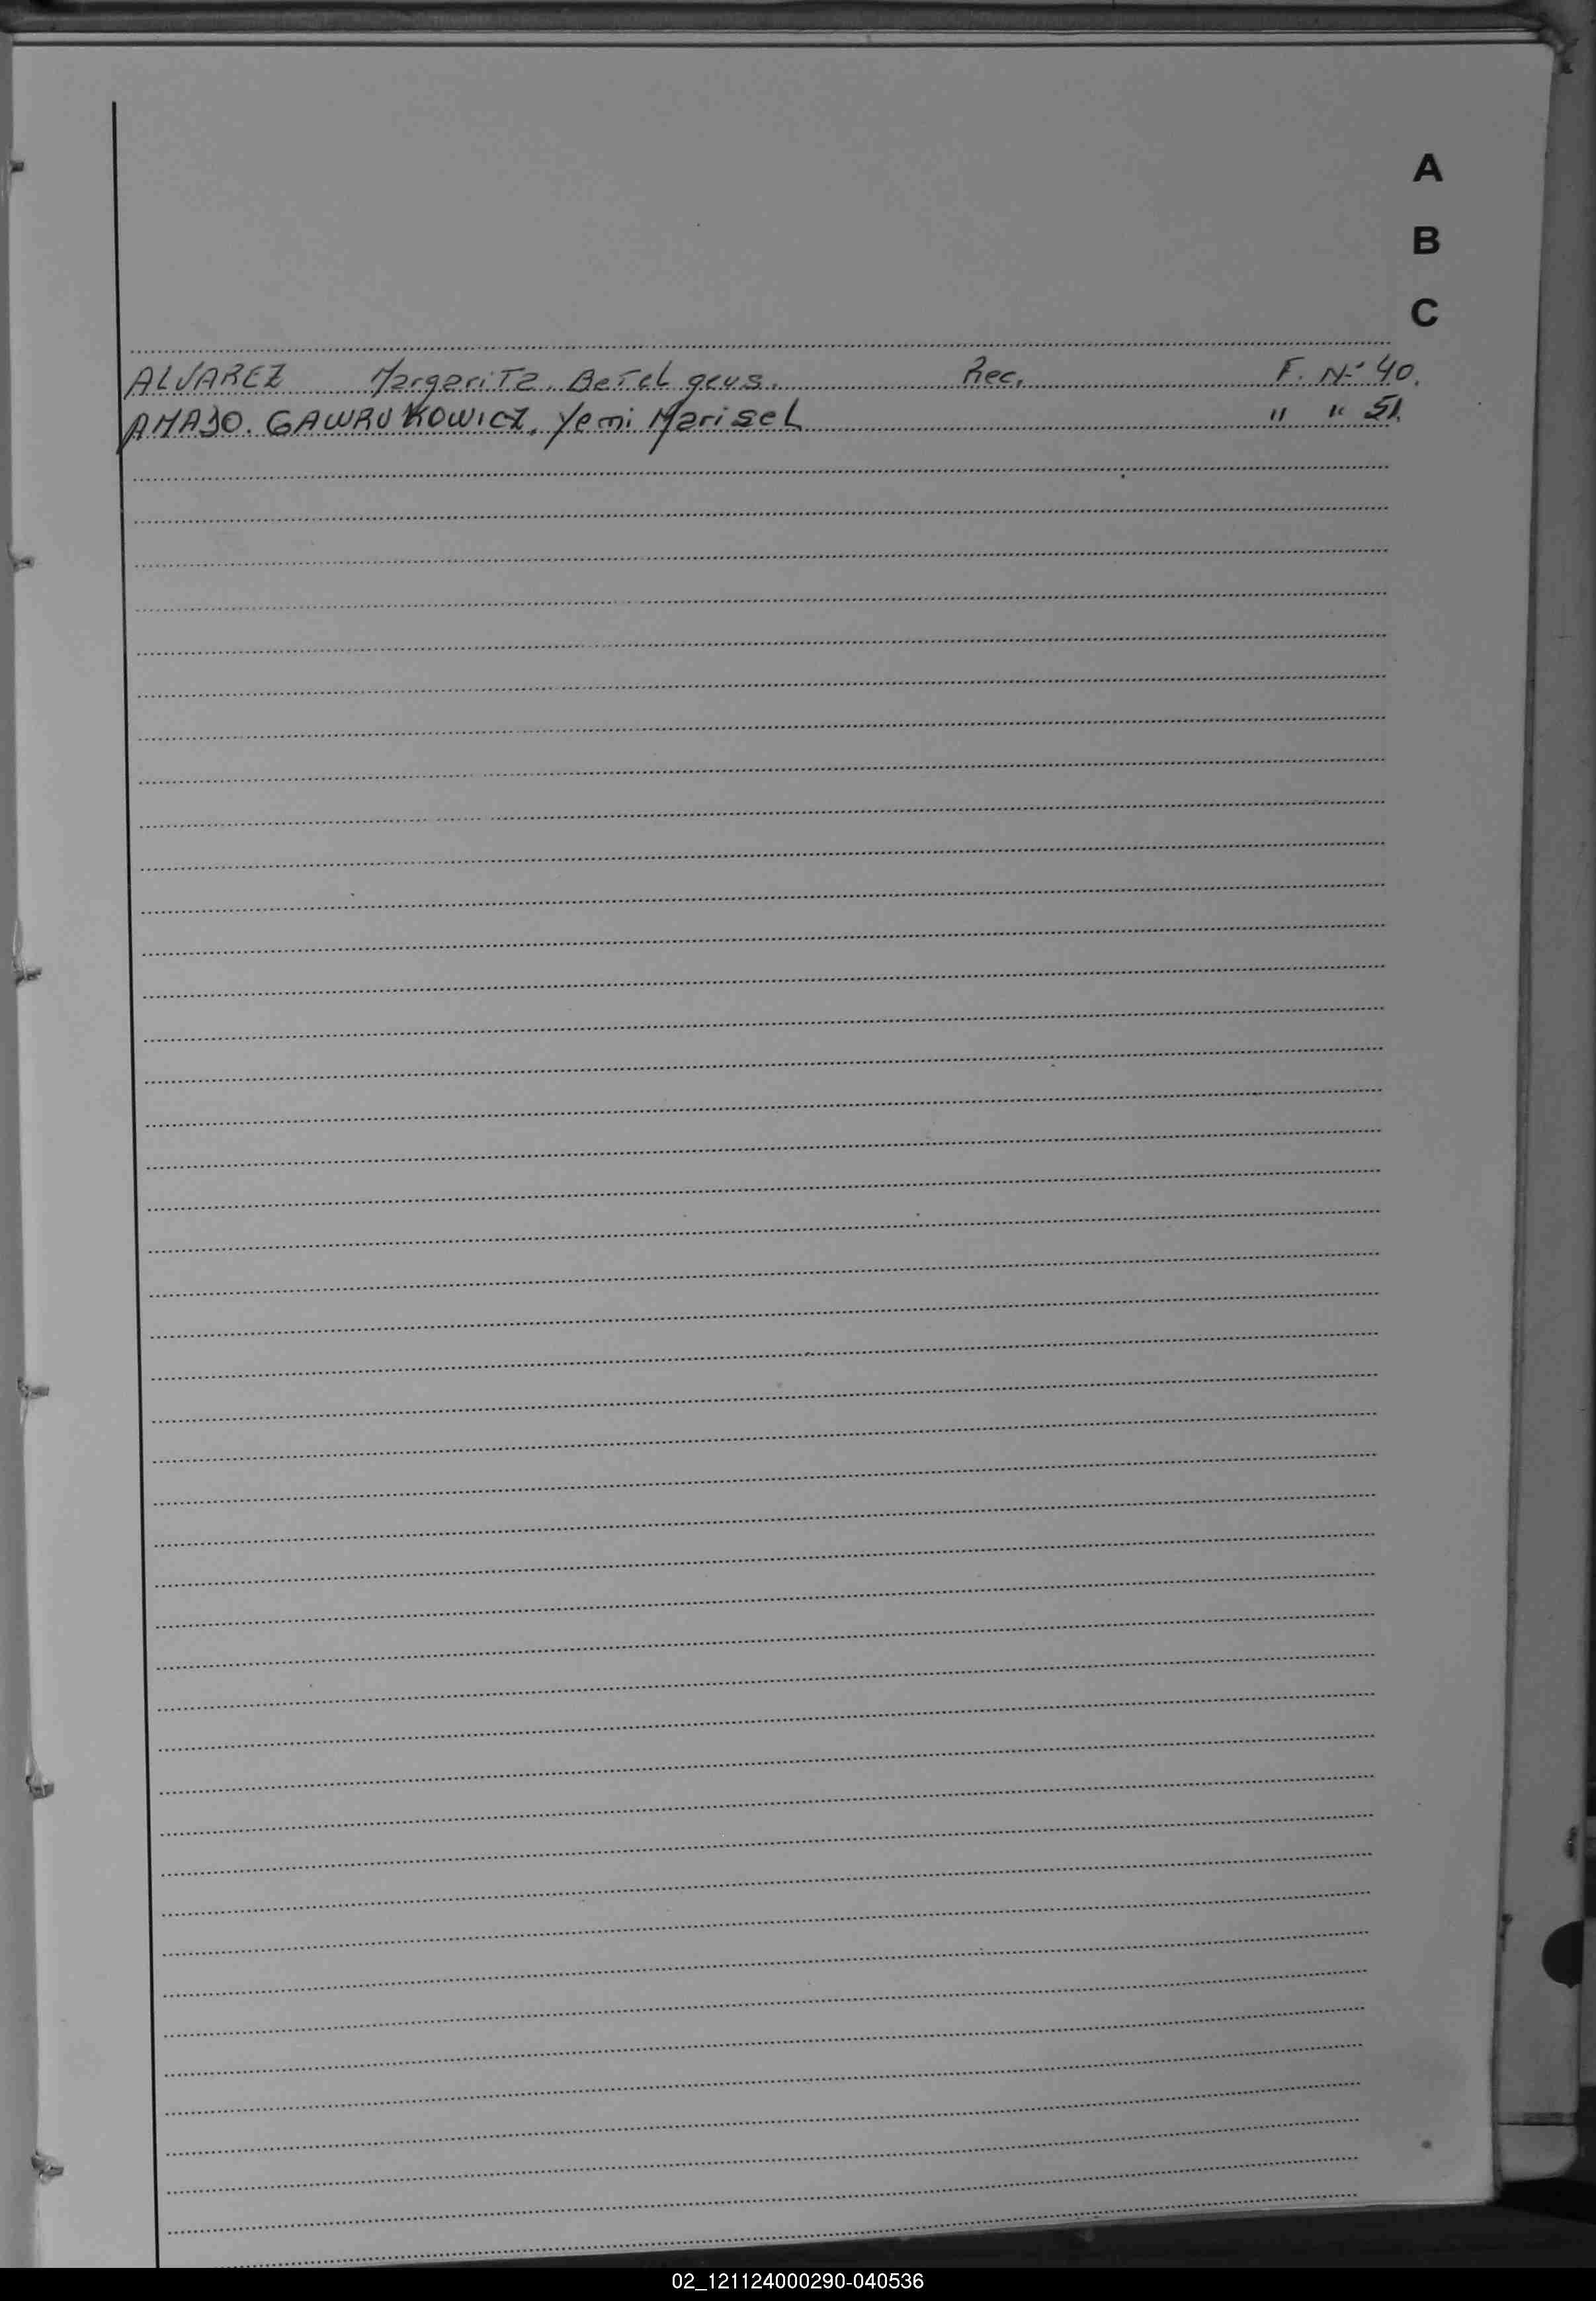 A
B
C
ALVAREZ Margarita. Betelgeus. Rec. F. Nº 40.
AMADO. GAWRUKOWICZ. Yemi Marisel " " 51.
02_121124000290-040536